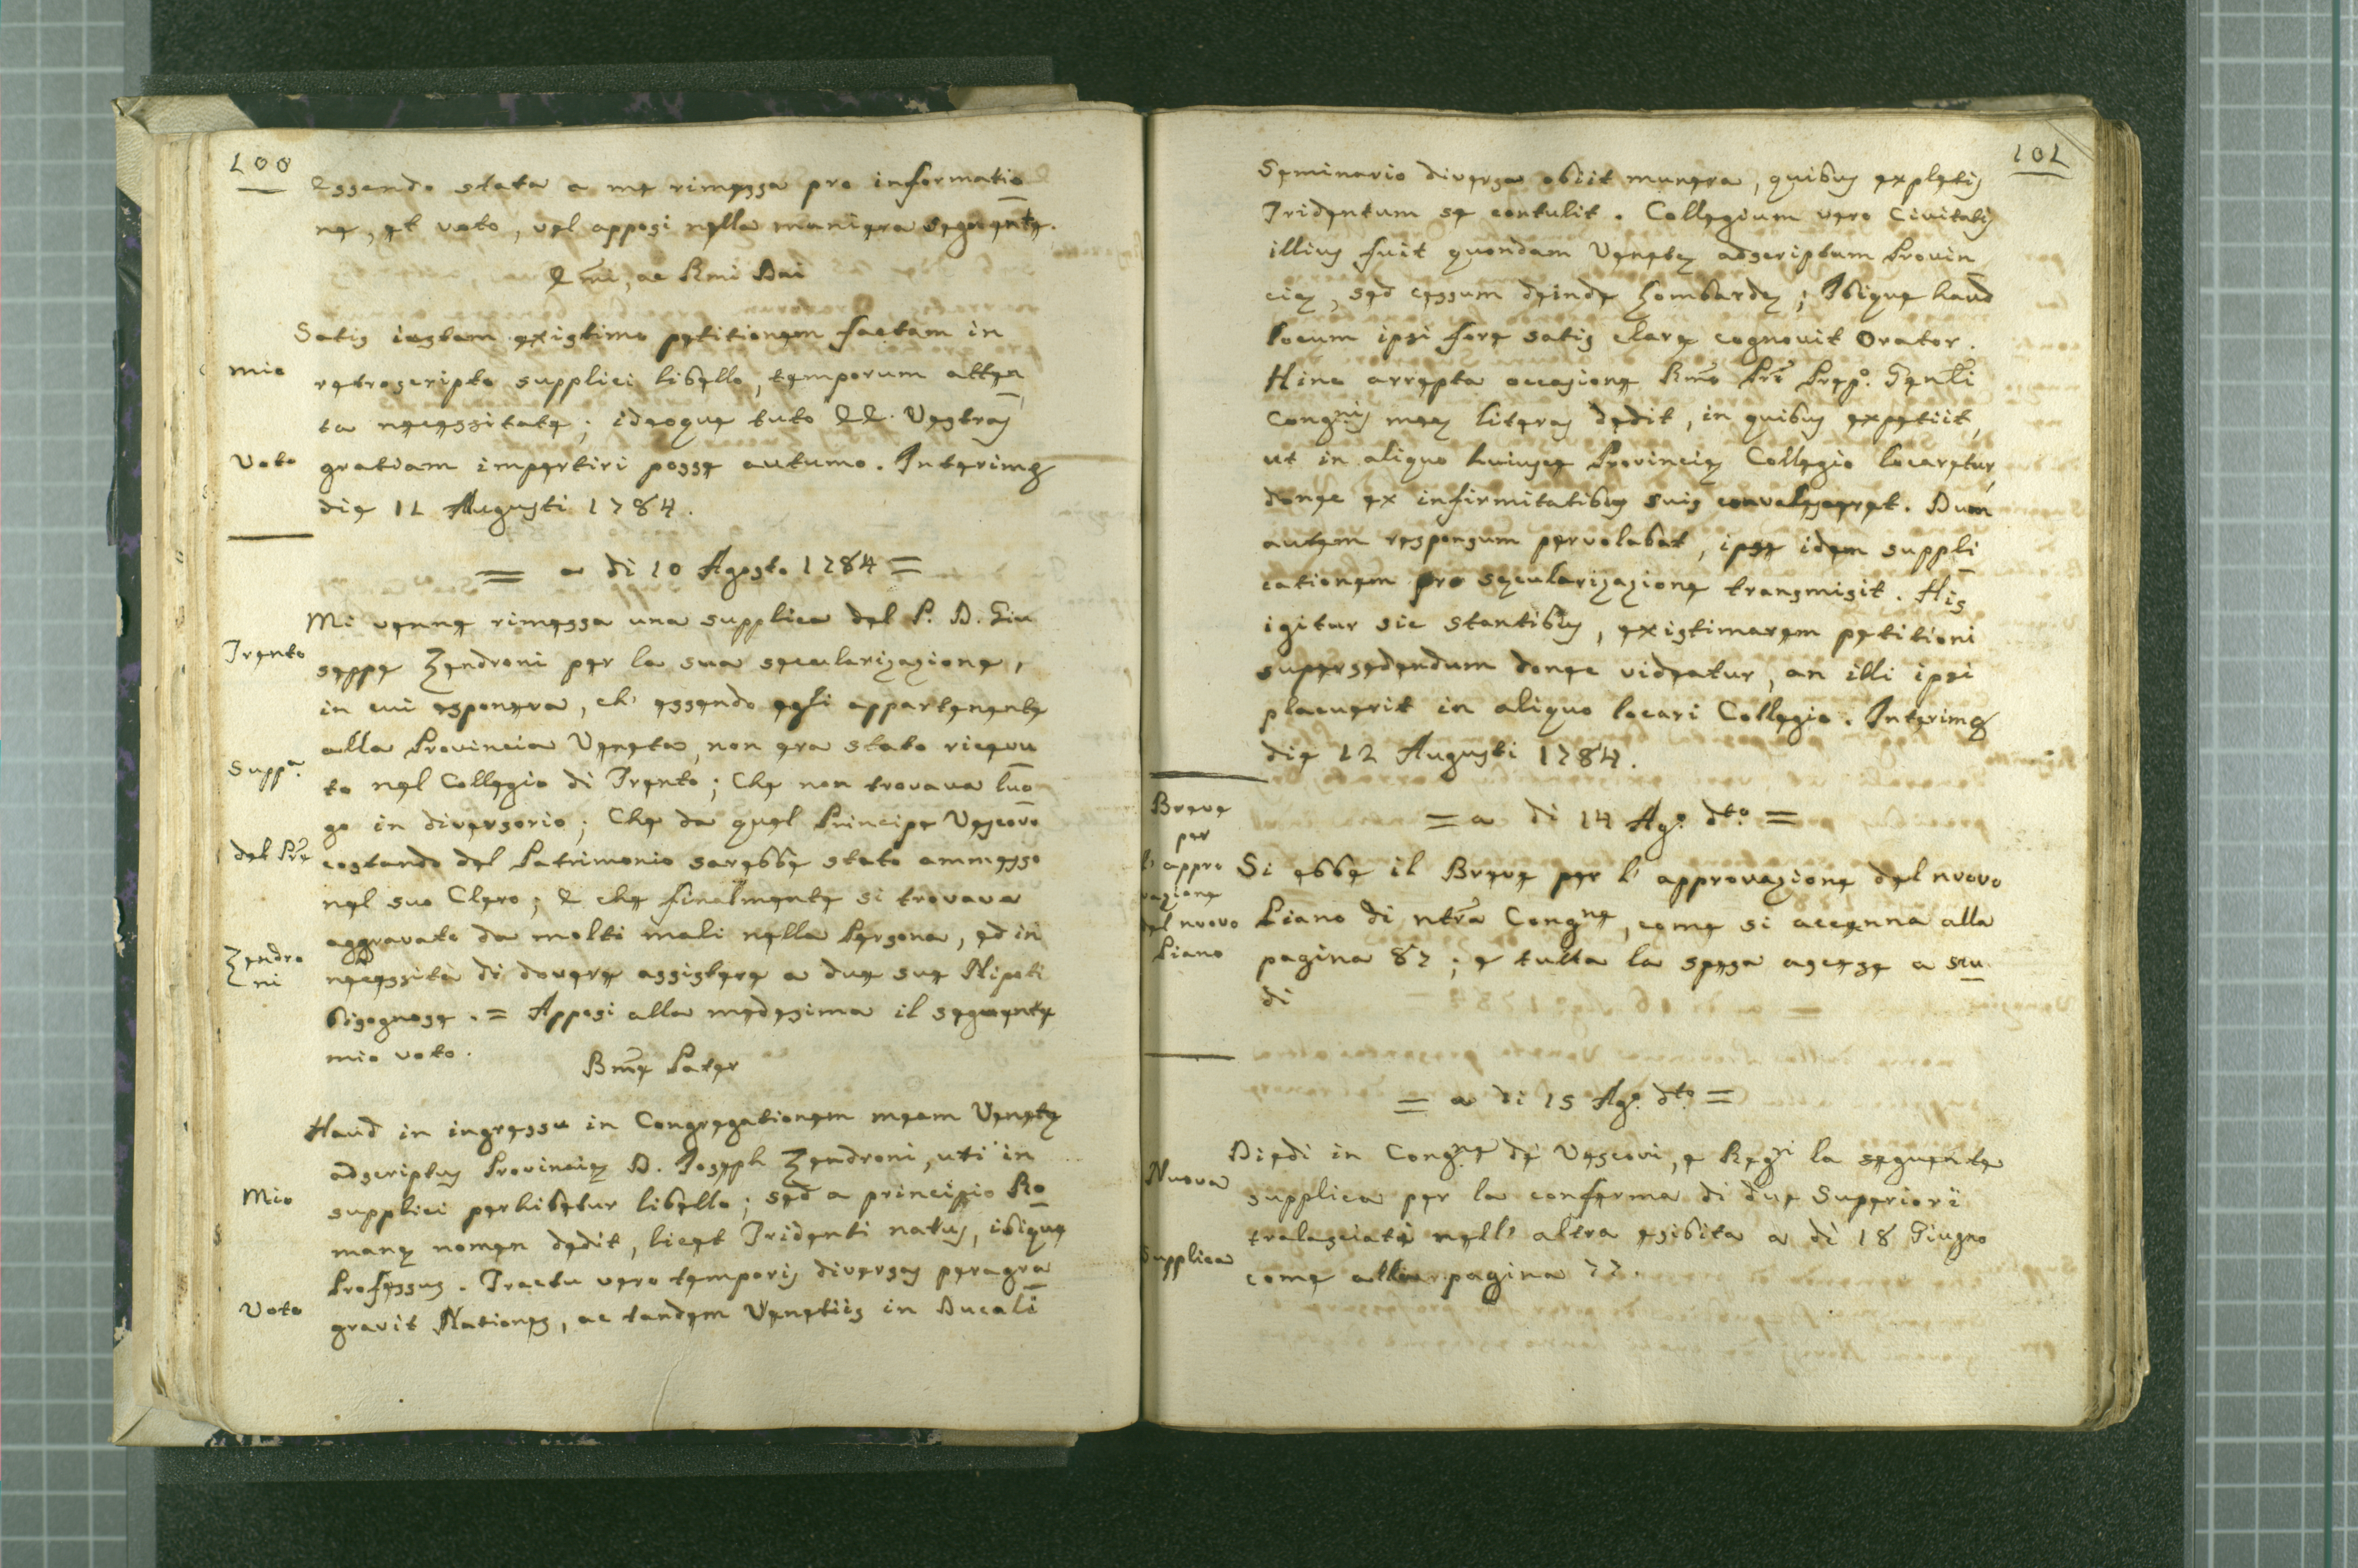 100
Essendo stata a me rimessa pro informatio
ne, et voto, vel apposi nella maniera seguente.
Emi, ac Rmi Dni
Satis iustam existimo petitionem factam in
mio
retroscripto supplici libello, temporum atten
ta necessitate; ideoque tuto EE. Vestras
Voto
gratiam impertiri posse autumo. Interim &
die 11 Augusti 1784.
= a di 10 Agosto 1784 =
Mi venne rimessa una supplica del P. D. Giu
Trento
seppe Zendroni per la sua secularizazione,
in cui esponeva, ch' essendo egli appartenente
alla Provincia Veneta, non era stato ricevu
Suppa.
to nel Collegio di Trento; Che non trovava luo
go in diversorio; Che da quel Principe Vescovo
del Pre
costando del Patrimonio sarebbe stato ammesso
nel suo Clero; E che finalmente si trovava
aggravato da molti mali nella Persona, ed in
Zendro
ni
necessità di dovere assistere a due sue Nipoti
bisognose. = Apposi alla medesima il seguente
mio voto.
Bme Pater
Haud in ingressu in Congregationem meam Venetę
adscriptus Provincię D. Joseph Zendroni, uti in
Mio
supplici perhibetur libello; sed a principio Ro
manę nomen dedit, licet Tridenti natus, ibique
Professus. Tractu vero temporis diversas peragra
Voto
gravit Nationes, ac tandem Venetiis in Ducali
101
Seminario diversa obiit munera, quibus expletis
Tridentum se contulit. Collegium vero Civitatis
illius fuit quondam Venetę adscriptum Provin
cię, sed cessum deinde Lombardę; Ibique haud
locum ipsi fore satis clare cognovit Orator.
Hinc arrepta occasione Rmo Pri Prępo. Genli
Congnis meę literas dedit, in quibus expetiit,
ut in aliquo huiusce Provincię Collegio locaretur,
donec ex infirmitatibus suis convalesceret. Dum
autem responsum pervolabat, ipse idem suppli
cationem pro secularizazione transmisit. His
igitur sic stantibus, existimarem petitioni
supersedendum donec videatur, an illi ipsi
placuerit in aliquo locari Collegio. Interim &
die 12 Augusti 1784.
Breve
per
l' appro
vazione
del nuovo
Piano
= a di 14 Ago. dto. =
Si ebbe il Breve per l' approvazione del nuovo
Piano di ntra Congne, come si accenna alla
pagina 87; e tutta la spesa ascese a scu
di
= a di 15 Ago. dto. =
Nuova
Diedi in Congne de Vescovi, e Regri la seguente
supplica per la conferma di due Superiori
Supplica
tralasciati nell' altra esibita a dì 18 Giugno
come alla pagina 77.